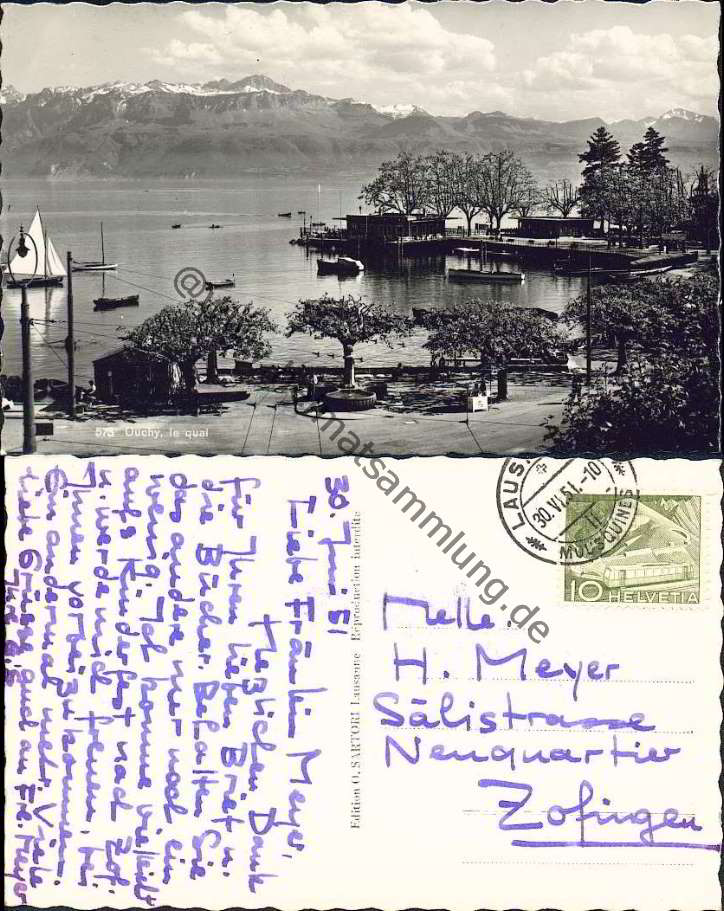 573 Ouchy, le quai
@heimatsammlung.de
30. Juni 51
Liebe Fräulein Meyer,
Herzlichen Dank
für Ihren lieben Brief u.
die Bücher. Behalten Sie
das andere nur noch ein
wenig. Ich komme vielleicht
aufs Kinderfest nach Zof.
u. werde mich freuen, bei
Ihnen vorbeizukommen.
Ein andermal mehr. Viele
liebe Grüsse auch an Frl. Meyer
Ihre
Edition O. SARTORI Lausanne Reproduction interdite
LAUS.
30.VI.51.-10
MOUSQUINES
10 HELVETIA
Melle.
H. Meyer
Sälistrasse
Neuquartier
Zofingen